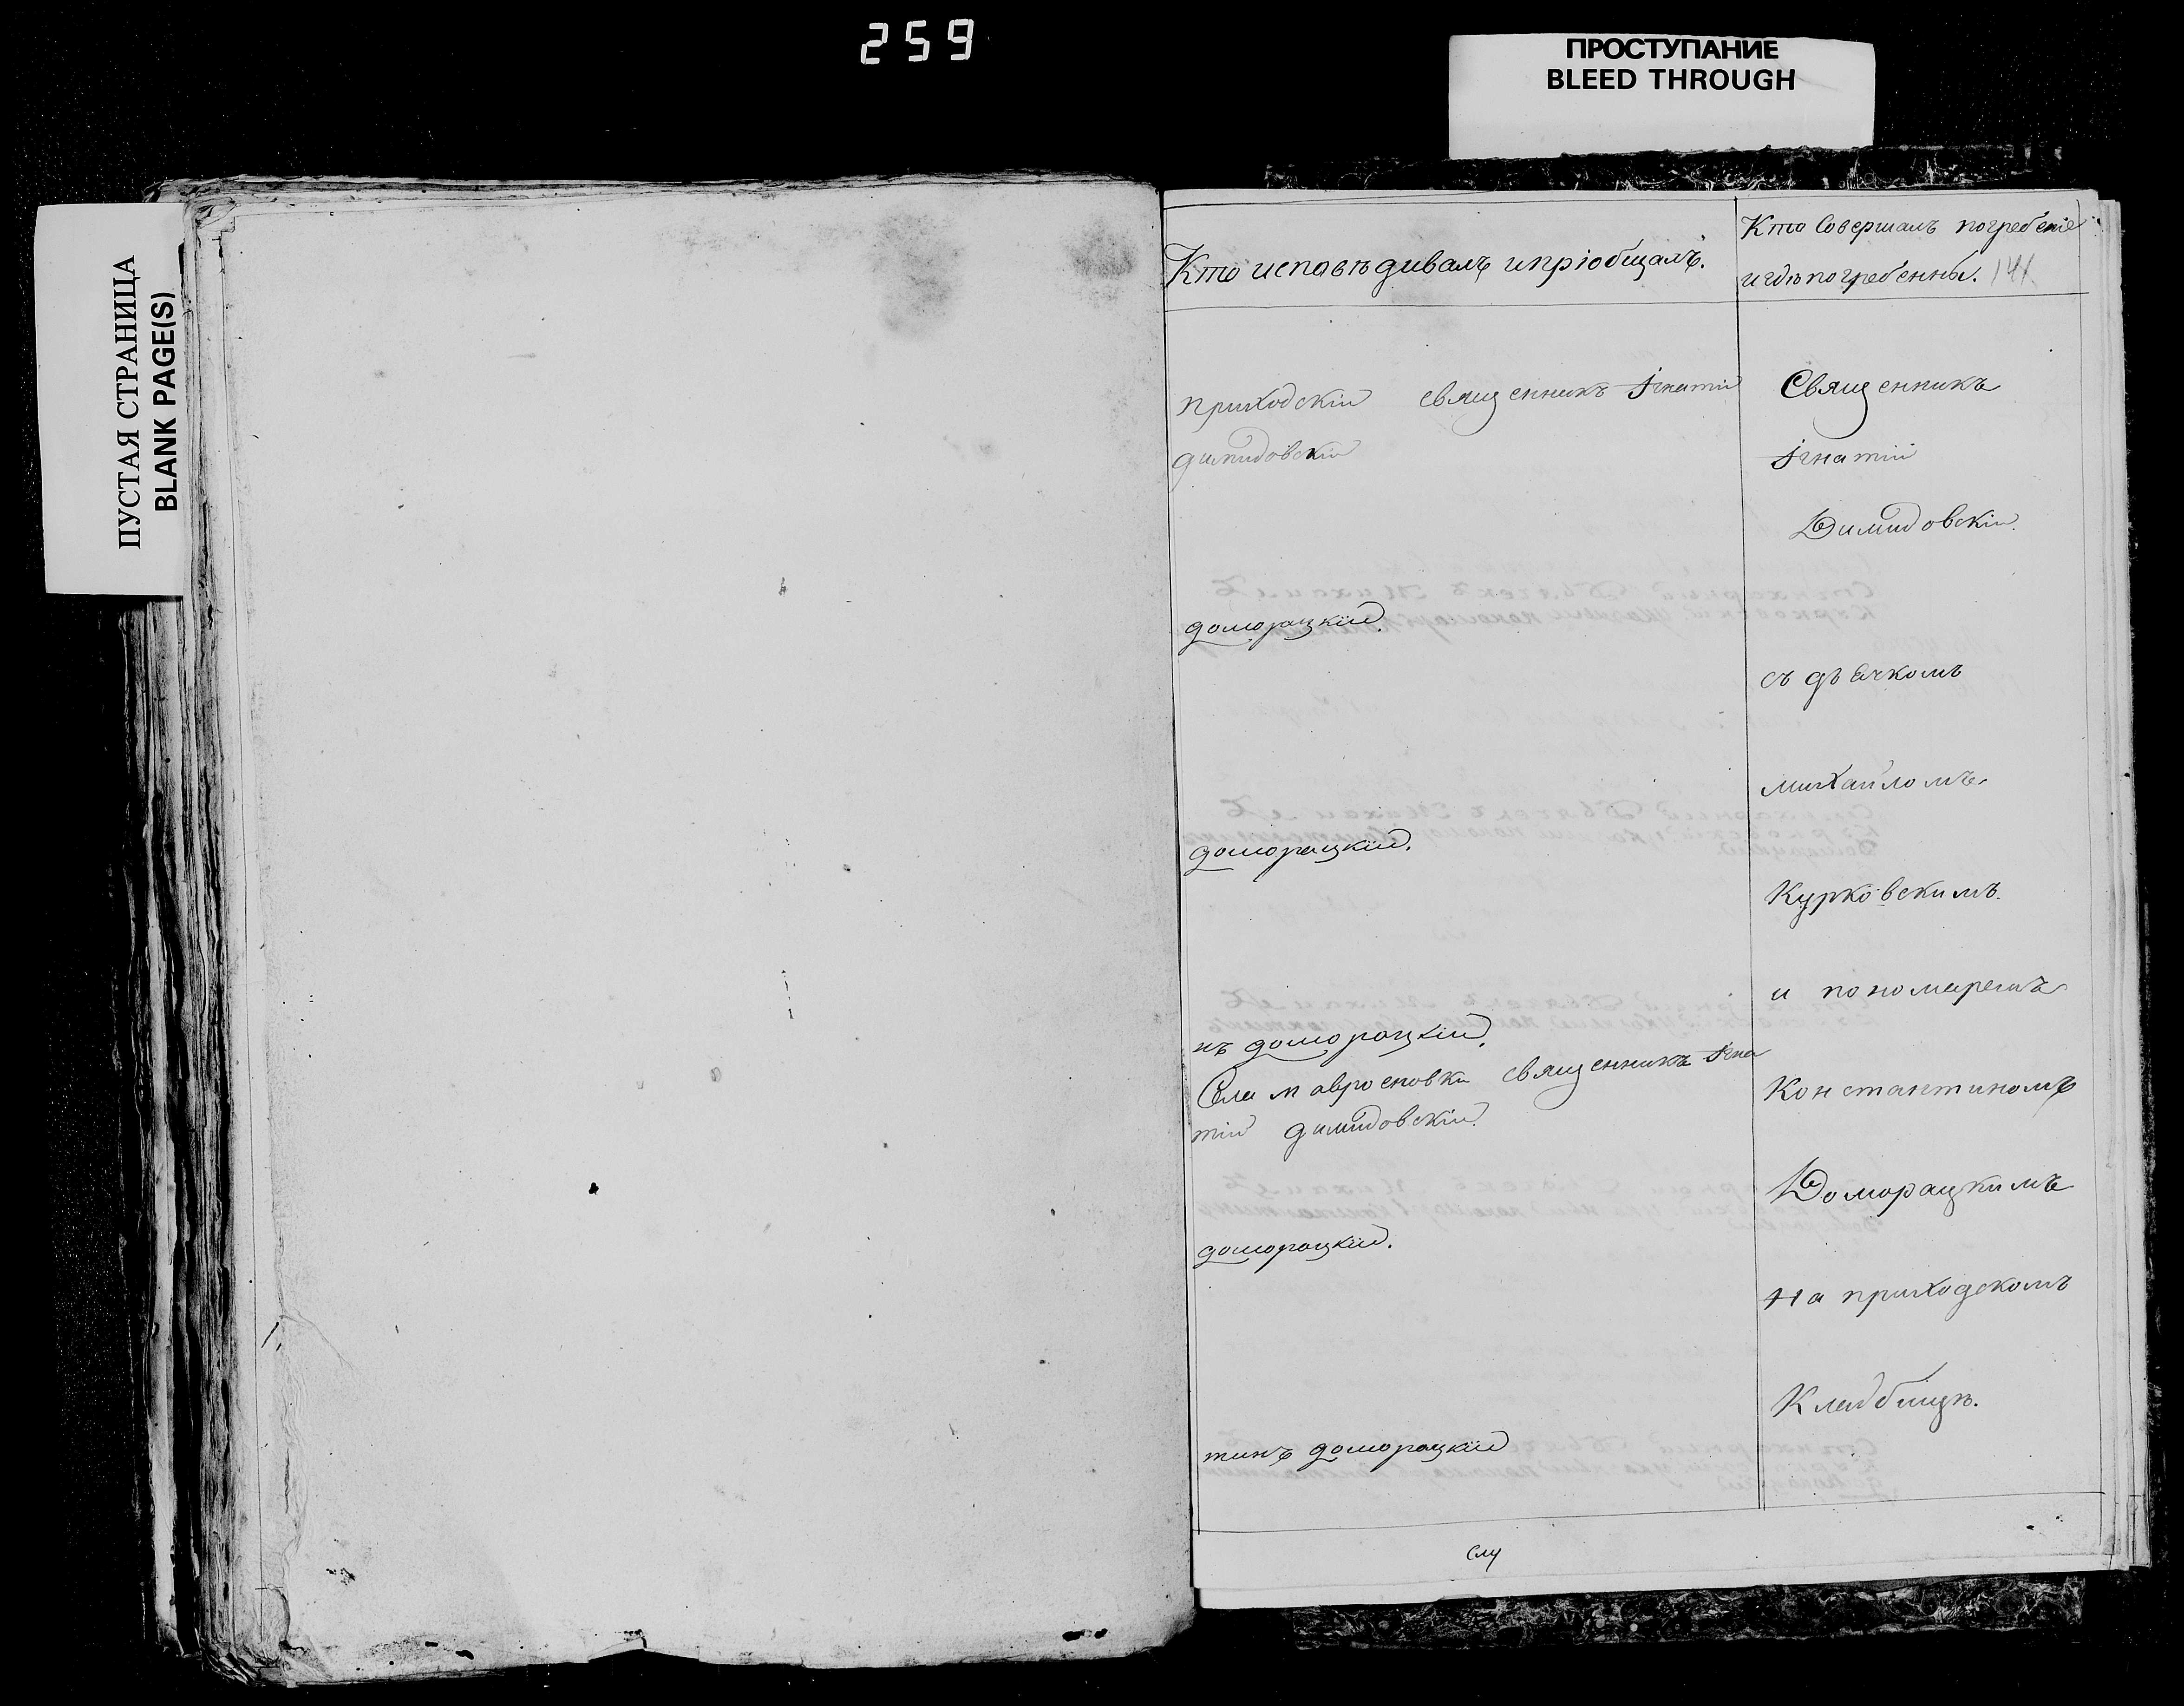 259
ПРОСТУПАНИЕ
BLEED THROUGH
ПУСТАЯ СТРАНИЦА
BLANK PAGE(S)
Кто исповѣдивалъ и пріобщалъ.
Кто Совершалъ погребеніе
и гдѣ погребенны. 141
приходскій священникъ Ігнатій
димидовскій
доморацкій.
доморацкій.
нъ доморацкій.
Села мавроеновки священникъ Ігна
тій димидовскій.
доморацкій.
тинъ доморацкій
Священникъ
Ігнатій
Димидовскій.
съ дьячкомъ
михайломъ
Курковскимъ.
и пономаремъ
Константиномъ
Доморацкимъ
На приходскомъ
Кладбищѣ.
слу
1.